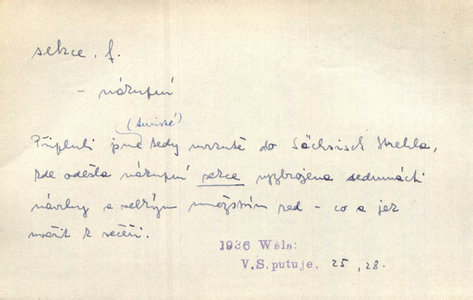 sekce, f.
- nákupní
(turisté)
Připluli jsme tedy do Sächsisch Strehla,
kde odešla nákupní sekce vyzbrojena sedmnácti
návrhy a velkým množstvím rad - co a jak
vařit k večeři.
1936 Wals:
V.S.putuje. 25, 28.